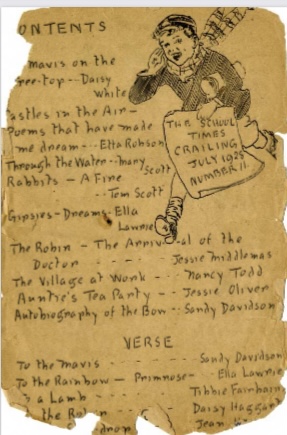 ONTENTS
mavis on the
ree-top -- Daisy
White
astles in the Air -
Poems that have made
me dream -- Etta Robson
Through the Water -- many
Scott
Rabbits - A Fire
-- Tom Scott
Gipsies - Dreams - Ella
Lawrie
THE SCHOOL
TIMES
CRAILING
JULY 1925
NUMBER 11.
The Robin - The Arrival of the
Doctor - - - Jessie Middlemas
The Village at Work -- Nancy Todd
Auntie's Tea Party -- Jessie Oliver
Autobiography of the Bow -- Sandy Davidson
VERSE
To the Mavis - - - Sandy Davidson
To the Rainbow - Primrose - Ella Lawrie
a Lamb - - - Tibbie Fairbairn
the Robin - - - Daisy Haggar
drop - - Jean